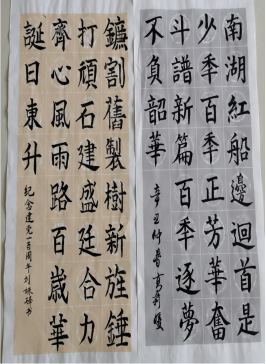 南湖紅船邊迴首是
少秊百秊正芳華奮
斗譜新篇百秊逐夢
不負韶華
辛丑仲春
鐮割舊製樹新旌錘
打頑石建盛廷合力
齊心風雨路百歲華
誕日東升
纪念建党一百周年刘
书